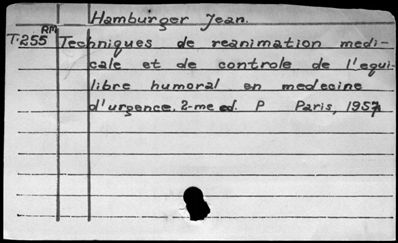 Hamburger Jean.
RM
T.255 Techniques de reanimation medi-
cale et de controle de l'equi-
libre humoral en medecine
d'urgence. 2-me ed. P Paris, 1957